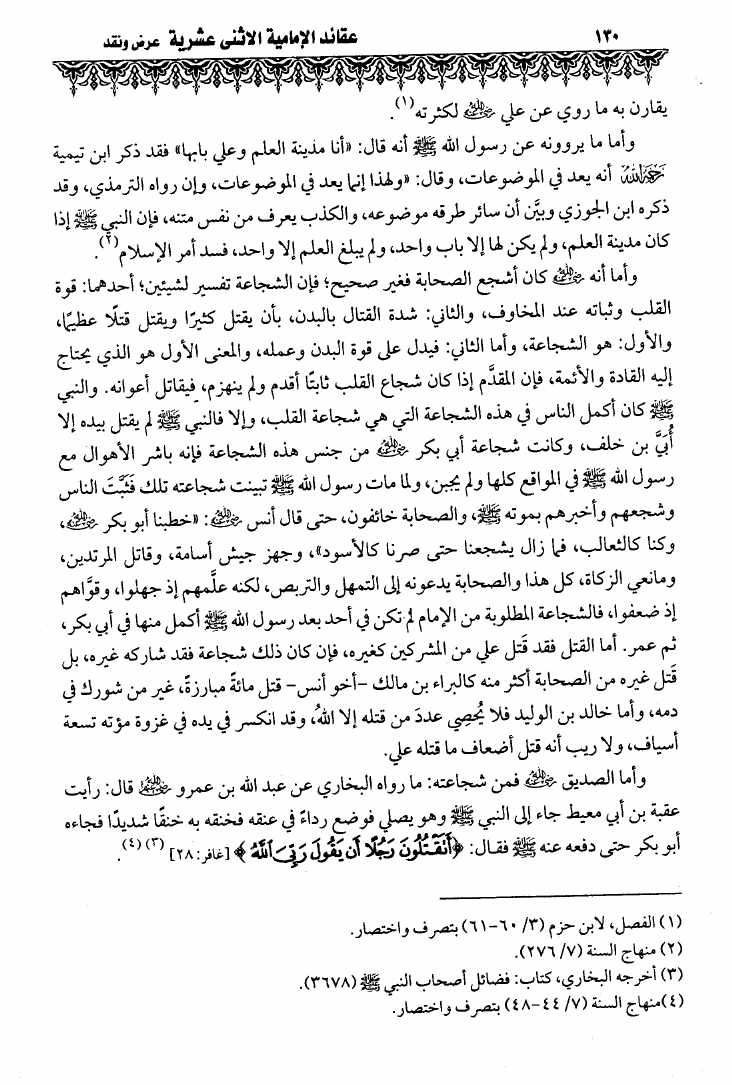 ١٣٠
عقائد الإمامية الاثنى عشرية عرض ونقد
يقارن به ما روي عن علي رضي الله عنه لكثرته(١).
وأما ما يروونه عن رسول الله ﷺ أنه قال: «أنا مدينة العلم وعلي بابها» فقد ذكر ابن تيمية
رحمه الله أنه يعد في الموضوعات، وقال: «ولهذا إنما يعد في الموضوعات، وإن رواه الترمذي، وقد
ذكره ابن الجوزي وبيَّن أن سائر طرقه موضوعه، والكذب يعرف من نفس متنه، فإن النبي ﷺ إذا
كان مدينة العلم، ولم يكن لها إلا باب واحد، ولم يبلغ العلم إلا واحد، فسد أمر الإسلام(٢).
وأما أنه رضي الله عنه كان أشجع الصحابة فغير صحيح؛ فإن الشجاعة تفسير لشيئين؛ أحدهما: قوة
القلب وثباته عند المخاوف، والثاني: شدة القتال بالبدن، بأن يقتل كثيرًا ويقتل قتلًا عظيمًا،
والأول: هو الشجاعة، وأما الثاني: فيدل على قوة البدن وعمله، والمعنى الأول هو الذي يحتاج
إليه القادة والأئمة، فإن المقدَّم إذا كان شجاع القلب ثابتًا أقدم ولم ينهزم، فيقاتل أعوانه. والنبي
ﷺ كان أكمل الناس في هذه الشجاعة التي هي شجاعة القلب، وإلا فالنبي ﷺ لم يقتل بيده إلا
أُبيَّ بن خلف، وكانت شجاعة أبي بكر رضي الله عنه من جنس هذه الشجاعة فإنه باشر الأهوال مع
رسول الله ﷺ في المواقع كلها ولم يجبن، ولما مات رسول الله ﷺ تبينت شجاعته تلك فَثَبَّتَ الناس
وشجعهم وأخبرهم بموته ﷺ، والصحابة خائفون، حتى قال أنس رضي الله عنه: «خطبنا أبو بكر رضي الله عنه،
وكنا كالثعالب، فما زال يشجعنا حتى صرنا كالأسود»، وجهز جيش أسامة، وقاتل المرتدين،
ومانعي الزكاة، كل هذا والصحابة يدعونه إلى التمهل والتربص، لكنه علَّمهم إذ جهلوا، وقوَّاهم
إذ ضعفوا، فالشجاعة المطلوبة من الإمام لم تكن في أحد بعد رسول الله ﷺ أكمل منها في أبي بكر،
ثم عمر. أما القتل فقد قَتل علي من المشركين كغيره، فإن كان ذلك شجاعة فقد شاركه غيره، بل
قَتل غيره من الصحابة أكثر منه كالبراء بن مالك -أخو أنس- قتل مائةً مبارزةً، غير من شورك في
دمه، وأما خالد بن الوليد فلا يُحصِي عددَ من قتله إلا اللهُ، وقد انكسر في يده في غزوة مؤته تسعة
أسياف، ولا ريب أنه قتل أضعاف ما قتله علي.
وأما الصديق رضي الله عنه فمن شجاعته: ما رواه البخاري عن عبد الله بن عمرو رضي الله عنه قال: رأيت
عقبة بن أبي معيط جاء إلى النبي ﷺ وهو يصلي فوضع رداءً في عنقه فخنقه به خنقًا شديدًا فجاءه
أبو بكر حتى دفعه عنه ﷺ فقال: ﴿أَتَقْتُلُونَ رَجُلًا أَن يَقُولَ رَبِّيَ ٱللَّهُ﴾ [غافر: ٢٨] (٣) (٤).
(١) الفصل، لابن حزم (٣/ ٦٠-٦١) بتصرف واختصار.
(٢) منهاج السنة (٧/ ٢٧٦).
(٣) أخرجه البخاري، كتاب: فضائل أصحاب النبي ﷺ (٣٦٧٨).
(٤)منهاج السنة (٧/ ٤٤-٤٨) بتصرف واختصار.